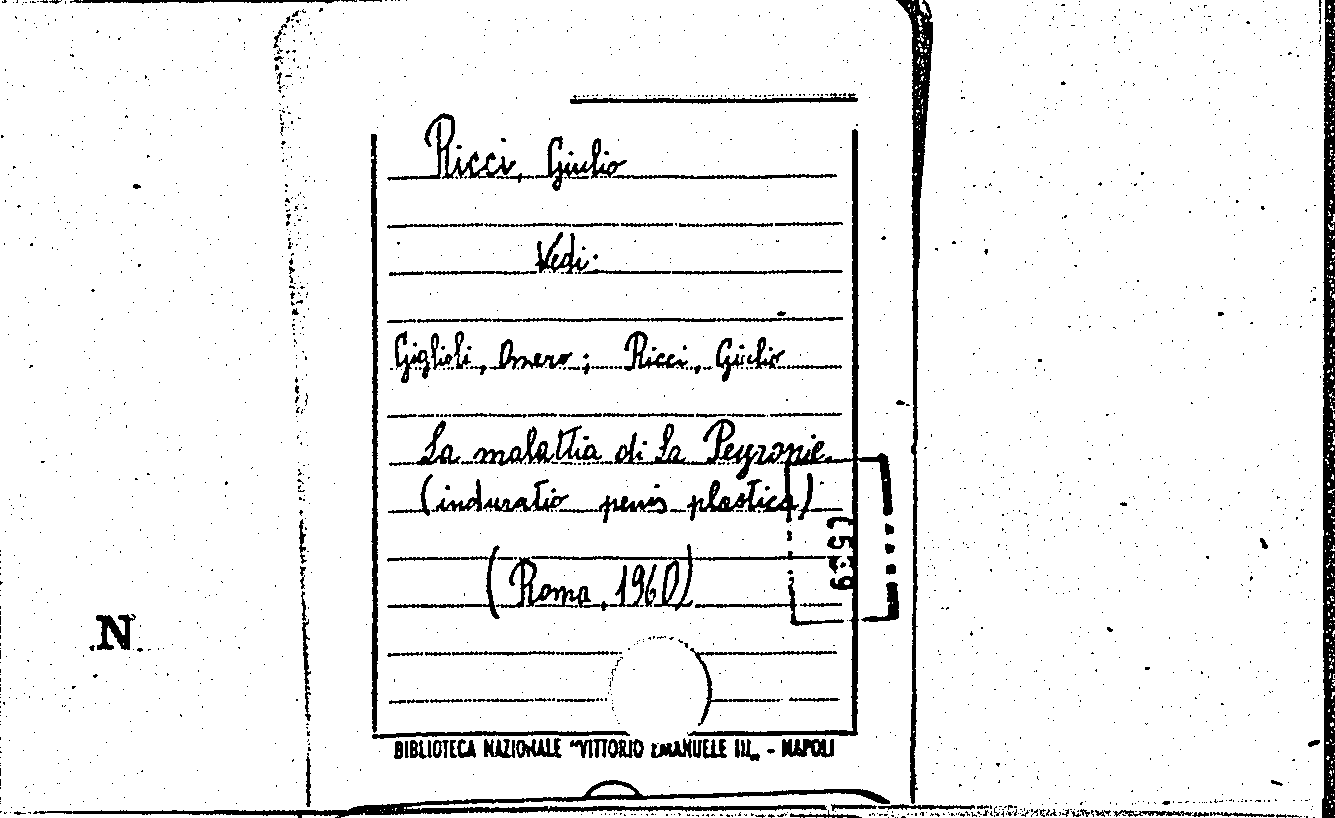 Ricci, Giulio
Vedi:
Giglioli, Omero; Ricci, Giulio
La malattia di La Peyronie.
(induratio penis plastica)
(Roma, 1960)
N
BIBLIOTECA NAZIONALE "VITTORIO EMANUELE III„ - NAPOLI